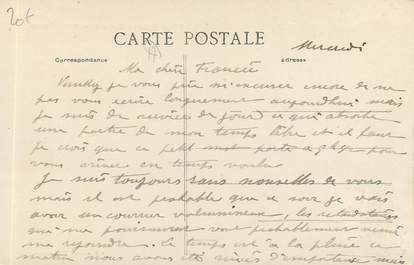 20f
CARTE POSTALE
Correspondance
adresse
Mercredi
Ma chère Francée
je vous prie m'excuser encore de ne
pas vous écrire longuement aujourd'hui mais
je suis de service de jour ce qui absorbe
une partie de mon temps libre et il faut
je crois que ce petit mot parte à pour
vous arriver en temps voulu
Je suis toujours sans nouvelles de vous
mais il est probable que ce soir je vais
avoir un courrier volumineux, les
qui me poursuivent vont probablement
me rejoindre. Le temps est à la pluie ce
matin nous avons été d'importance mais